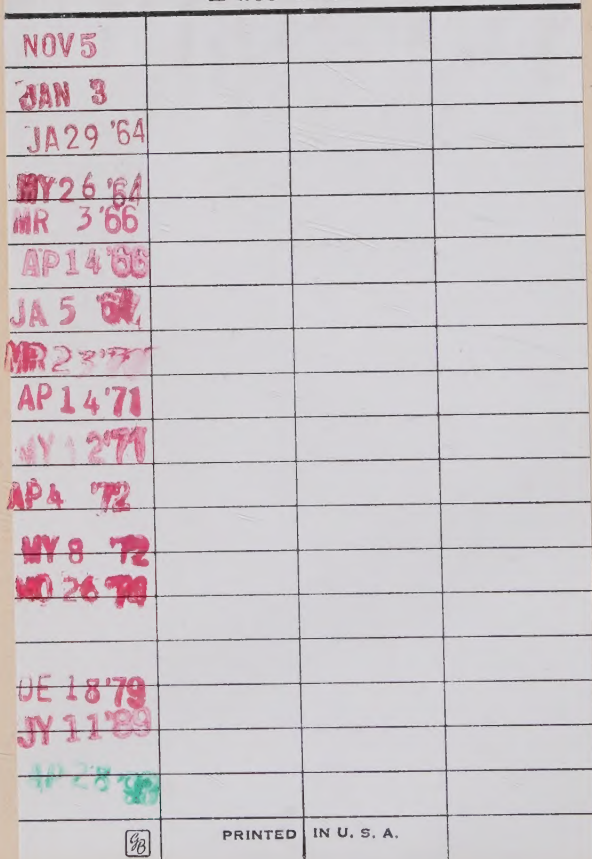 NOV 5
JAN 3
JA 29 '64
MY 26 '64
MR 3 '66
AP 14 '66
JA 5
MR 23 '71
AP 14 '71
MY 12 '71
AP 4 '72
MY 8 72
26
DE 18 '79
JY 11 '89
AP 28
GB
PRINTED IN U. S. A.